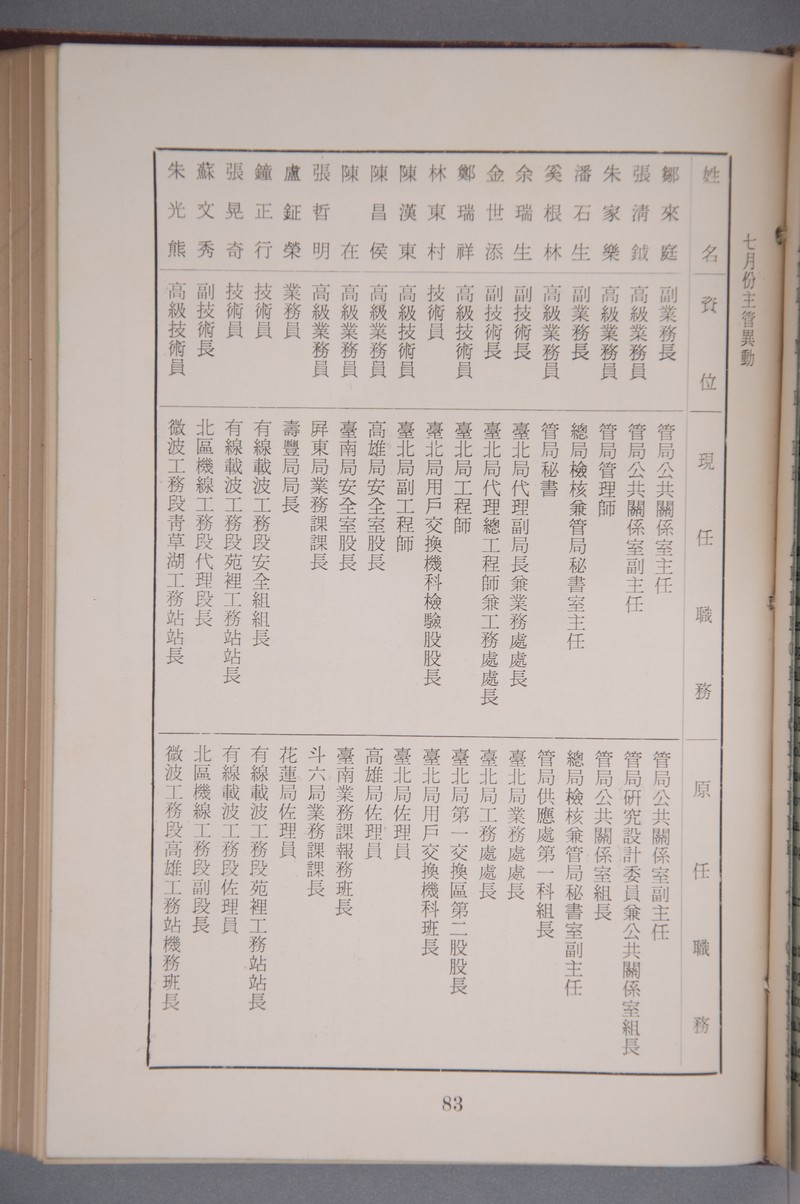 七月份主管異動
姓名 資位 現任職務 原任職務
鄒來庭 副業務長 管局公共關係室主任 管局公共關係室副主任
張清鉞 高級業務員 管局公共關係室副主任 管局研究設計委員兼公共關係室組長
朱家樂 高級業務員 管局管理師 管局公共關係室組長
潘石生 副業務長 總局檢核兼管局秘書室主任 總局檢核兼管局秘書室副主任
奚根林 高級業務員 管局秘書 管局供應處第一科組長
余瑞生 副技術長 臺北局代理副局長兼業務處處長 臺北局業務處處長
金世添 副技術長 臺北局代理總工程師兼工務處處長 臺北局工務處處長
鄭瑞祥 高級技術員 臺北局工程師 臺北局第一交換區第二股股長
林東村 技術員 臺北局用戶交換機科檢驗股股長 臺北局用戶交換機科班長
陳漢東 高級技術員 臺北局副工程師 臺北局佐理員
陳昌侯 高級業務員 高雄局安全室股長 高雄局佐理員
陳在 高級業務員 臺南局安全室股長 臺南業務課報務班長
張哲明 高級業務員 屏東局業務課課長 斗六局業務課課長
盧鉦榮 業務員 壽豐局局長 花蓮局佐理員
鐘正行 技術員 有線載波工務段安全組組長 有線載波工務段苑裡工務站站長
張晃奇 技術員 有線載波工務段苑裡工務站站長 有線載波工務段佐理員
蘇文秀 副技術長 北區機線工務段代理段長 北區機線工務段副段長
朱光熊 高級技術員 微波工務段青草湖工務站站長 微波工務段高雄工務站機務班長
83